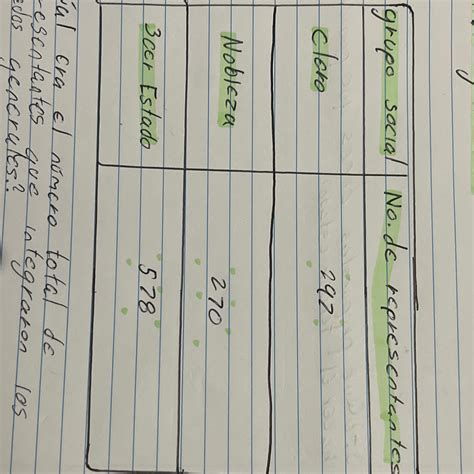 grupo social No. de representantes
Clero 297
Nobleza 270
3cer Estado 578
era el número total de
que integraron los
generales?